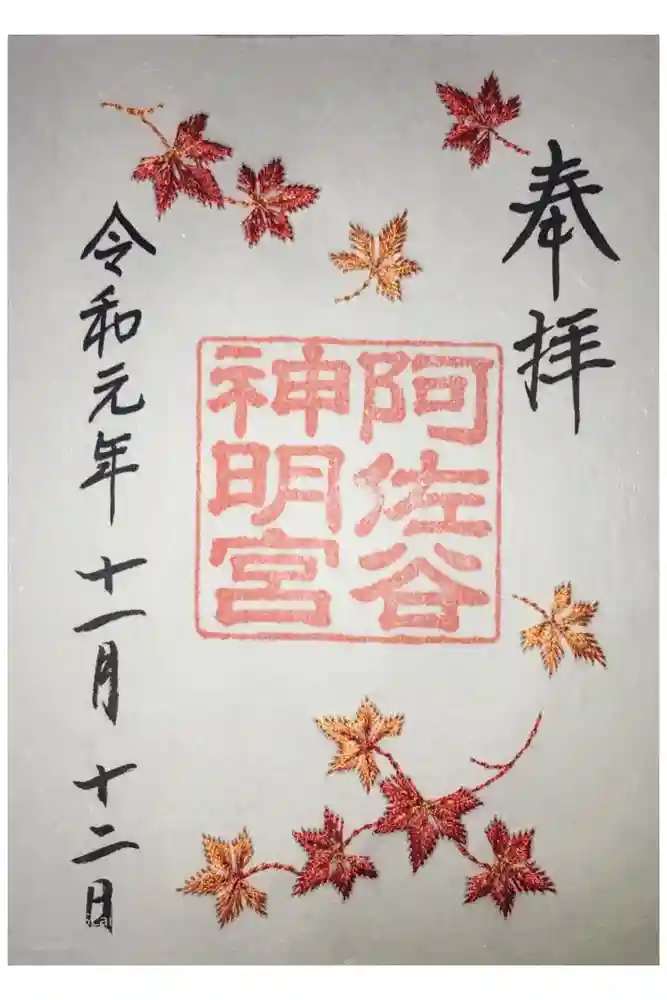 奉拝
阿佐谷
神明宮
令和元年十一月十二日